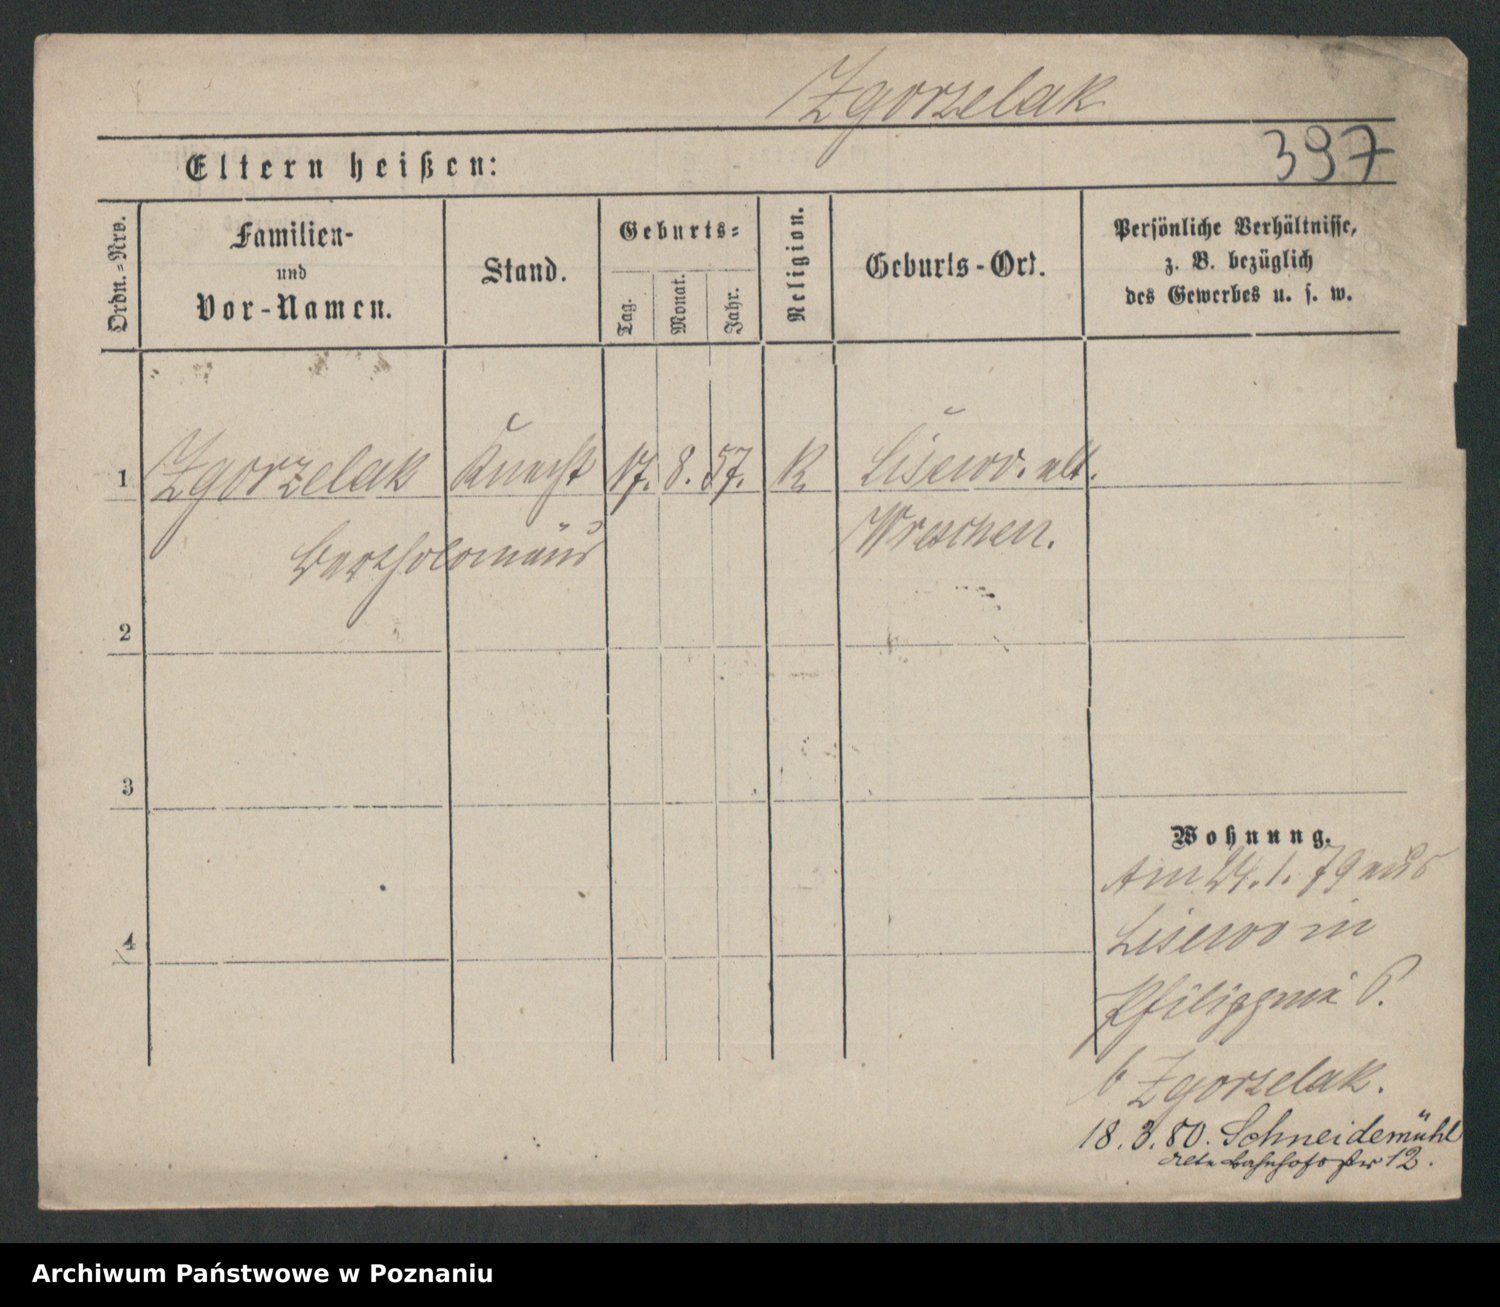 Zgorzelak
397
Eltern heißen:
Ordn.-Nro.
Familien-
und
Vor-Namen.
Stand.
Geburts-
Tag.
Monat.
Jahr.
Religion.
Geburts-Ort.
Persönliche Verhältnisse,
z. B. bezüglich
des Gewerbes u. s. w.
1 Zgorzelak Knecht 17. 8. 57. K Lisewo. alt.
Bartholomäus Wreschen.
2
3
Wohnung.
Am 24. 1. 79 aus
4 Lisewo in
6.
b Zgorzelak.
18. 3. 80. Schneidemühl
alte Bahnhofstr 12.
Archiwum Państwowe w Poznaniu